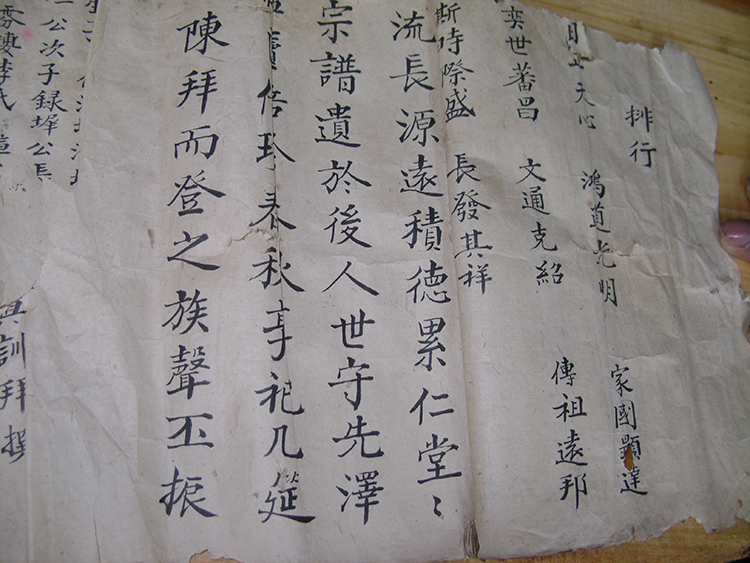 排行
天心 鴻道光明 家國顯達
奕世蕃昌 文通克紹 傳祖遠邦
斯時際盛 長發其祥
流長源遠積德累仁堂〻
宗譜遺於後人世守先澤
倍珍春秋享祀几筵
陳拜而登之族聲丕振
訓拜撰
公次子録墀公長
李氏